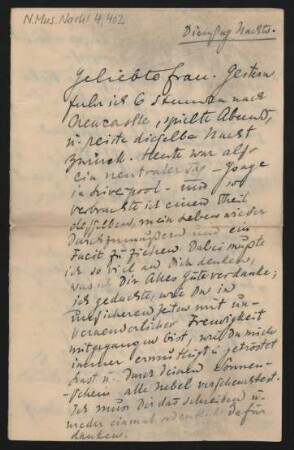 N.Mus.Nachl. 4,402
Dienstag Nachts.
Geliebte Frau. Gestern
fuhr ich 6 Stunden nach
Newcastle, spielte Abends,
u. reiste dieselbe Nacht
zurück. Heute war also
ein neutraler Tag
in Liverpool - und so
verbrachte ich einen Theil
desselben, mein Leben wieder
durchzumustern und ein
Facit zu ziehen. Dabei musste
ich so viel an Dich denken,
was ich Dir Alles Gute verdanke;
ich gedachte, wie Du in
unsicheren Zeiten mit un-
veränderlicher Freudigkeit
mitgegangen bist, wie Du mich
immer ermuthigt u. getröstet
hast u. durch Deinen Sonnen-
schein alle Nebel verscheuchtest.
Ich muss Dir das schreiben u.
wieder einmal ordentlich dafür
danken.